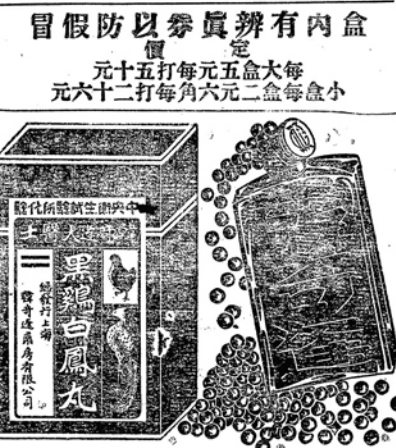 盒內有辨眞參以防假冒
定價
每大盒五元每打五十元
小盒每盒二元六角每打二十六元
中央衛生試驗所化驗
黑鷄白鳳丸
總發行上海
韓奇逢藥房有限公司